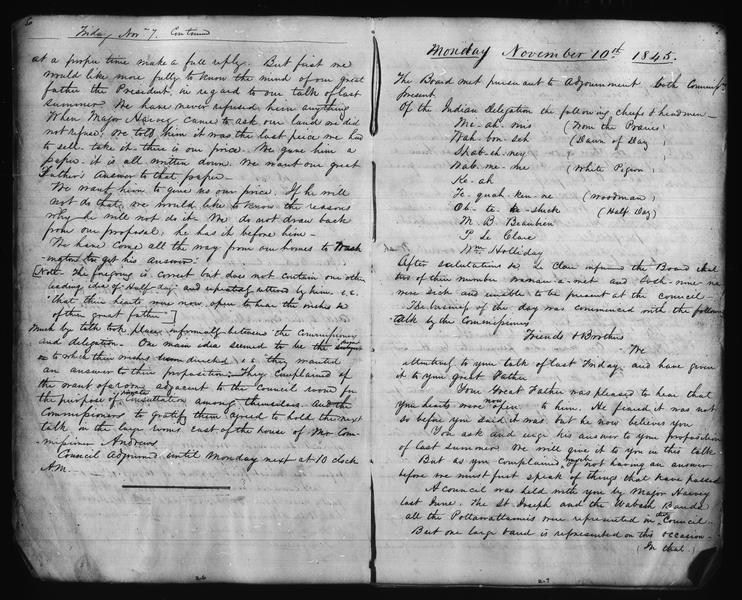 6
Friday Nov 7. Continued
at a proper time make a full reply. But first we
would like more fully to know the mind of our great
father the President, in regard to our talk of last
summer. We have never refused him anything
When Major Harvey came to ask our land we did
not refuse. We told him it was the last peice we had
to sell. take it - there is our price. We gave him a
paper - it is all written down. We want our great
Father's answer to that paper -
We want him to give us our price. If he will
not do that, we would like to know the reasons
why he will not do it. We do not draw back
from our proposal, he has it before him -
We have come all the way from our homes to Wash-
ington to get his answer.
[Note. The foregoing is correct but does not contain one other
leading idea of Half-day and repeatedly uttered by him i.e.
that their hearts were now open to hear the wishes
of their great father.]
Much by talk took place informally between the Commissioners
and delegation. One main idea seemed to be the
on to which their wishes were directed i.e. they wanted
an answer to their proposition. They complained of
the want of a room adjacent to the Council room for
the purpose of private consultation among themselves. And the
Commissioners to gratify them agreed to hold the next
talk in the large room east of the house of Mr Com-
missioner Andrews.
Council Adjourned until Monday next at 10 clock
AM.
26
Monday November 10th 1845.
The Board met pursuant to Adjournment, both Commissrs
present.
Of the Indian Delegation the following chiefs & headmen -
Me-ah-mis (Wom the Prairie)
Wah-bon-seh (Dawn of Day)
Shab-eh-ney
Wab-me-me (White Pigeon)
Ke-ah
Te-quah-ke-ne (Woodman)
Ob-te-ke-shick (Half Day)
M. B. Beaubien
P. Le Clare
Wm Holliday
After salutations &c Le Clare informed the Board that
two of their number and
were sick and unable to be present at the council -
The business of the day was commenced with the following
talk by the Commissioners
Friends & Brothers
We
attentively to your talk of last Friday and have given
it to your great Father
Your Great Father was pleased to hear that
your hearts were now open to him. He feared it was not
so before you said it was but he now believes you
You ask and urge his answer to your proposition
of last summer. We will give it to you in this talk.
But as you complained, of not having an answer
before we must first speak of things that have passed
A council was held with you by Major Harvey
last June. The St Joseph and the Wabash Bands
all the Pottawattamies were represented in that Council.
But one large band is represented on this occasion -
(In that)
27